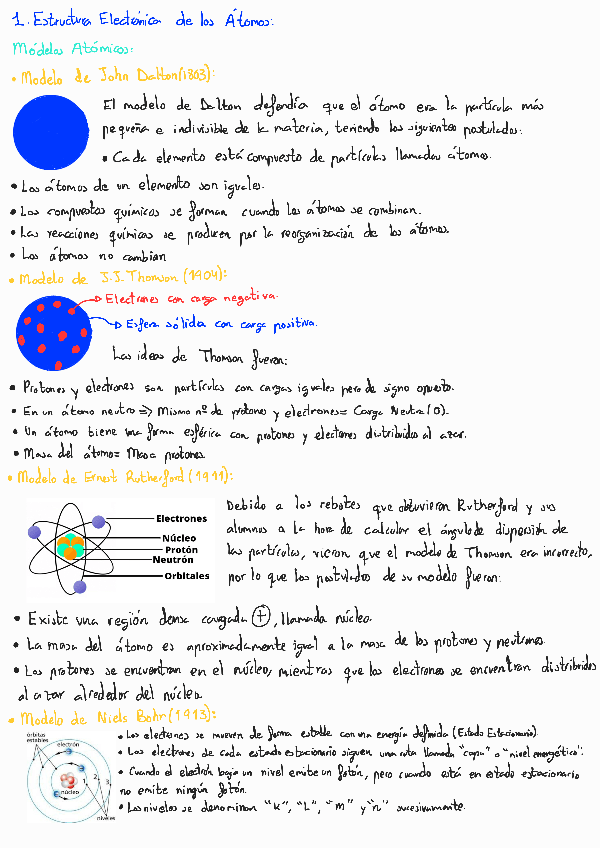 1. Estructura Electrónica de los Átomos:
Modelos Atómicos:
• Modelo de John Dalton (1803):
El modelo de Dalton defendía que el átomo era la partícula más
pequeña e indivisible de la materia, teniendo los siguientes postulados:
• Cada elemento está compuesto de partículas llamadas átomos.
• Los átomos de un elemento son iguales.
• Los compuestos químicos se forman cuando los átomos se combinan.
• Las reacciones químicas se producen por la reorganización de los átomos.
• Los átomos no cambian
• Modelo de J.J. Thomson (1904):
Electrones con carga negativa.
Esfera sólida con carga positiva.
Las ideas de Thomson fueron:
• Protones y electrones son partículas con cargas iguales pero de signo opuesto.
• En un átomo neutro => Mismo nº de protones y electrones = Carga Neutra (0).
• Un átomo tiene una forma esférica con protones y electrones distribuidos al azar.
• Masa del átomo = Masa protones.
• Modelo de Ernest Rutherford (1911):
Electrones
Núcleo
Protón
Neutrón
Orbitales
Debido a los rebotes que obtuvieron Rutherford y sus
alumnos a la hora de calcular el ángulo de dispersión de
las partículas, vieron que el modelo de Thomson era incorrecto,
por lo que los postulados de su modelo fueron:
• Existe una región densa cargada +, llamada núcleo.
• La masa del átomo es aproximadamente igual a la masa de los protones y neutrones.
• Los protones se encuentran en el núcleo, mientras que los electrones se encuentran distribuidos
al azar alrededor del núcleo.
• Modelo de Niels Bohr (1913):
órbitas
estables
electrón
núcleo
1
2
3
niveles
• Los electrones se mueven de forma estable con una energía definida (Estado Estacionario).
• Los electrones de cada estado estacionario siguen una ruta llamada "capa" o "nivel energético".
• Cuando el electrón baja un nivel emite un fotón, pero cuando está en estado estacionario
no emite ningún fotón.
• Los niveles se denominan "k", "L", "m" y "n" sucesivamente.